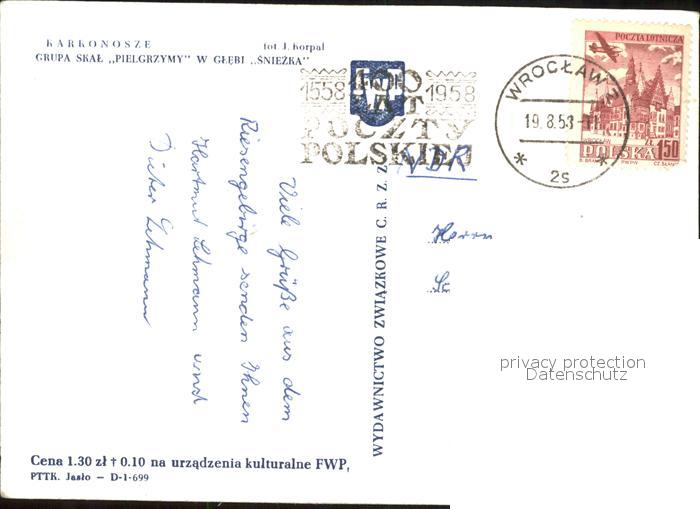 KARKONOSZE
fot J. Korpal
GRUPA SKAŁ „PIELGRZYMY” W GŁĘBI „ŚNIEŻKA”
1558 400 1958
LAT
POCZTY
POLSKIEJ
WROCŁAW
19.8.58
2s
POCZTA LOTNICZA
ZŁ
POLSKA 150
NDR
Viele Grüße aus dem
Riesengebirge senden Ihnen
Hartmut Lehmann und
Dieter Lehmann
WYDAWNICTWO ZWIĄZKOWE C. R. Z. Z.
Herrn
privacy protection
Datenschutz
Cena 1.30 zł † 0.10 na urządzenia kulturalne FWP,
PTTK. Jasło – D-1-699